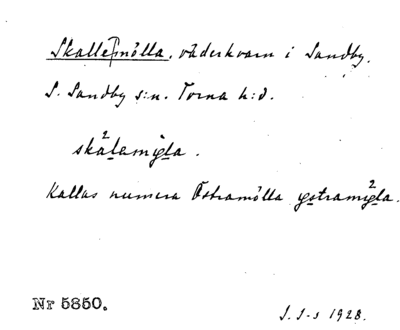 Skallemölla, väderkvarn i Sandby.
S. Sandby s:n. Torna h:d.
skàlamỳla.
Kallas numera Östramölla ystramỳla.
Nr 5850.
S. I-s 1928.